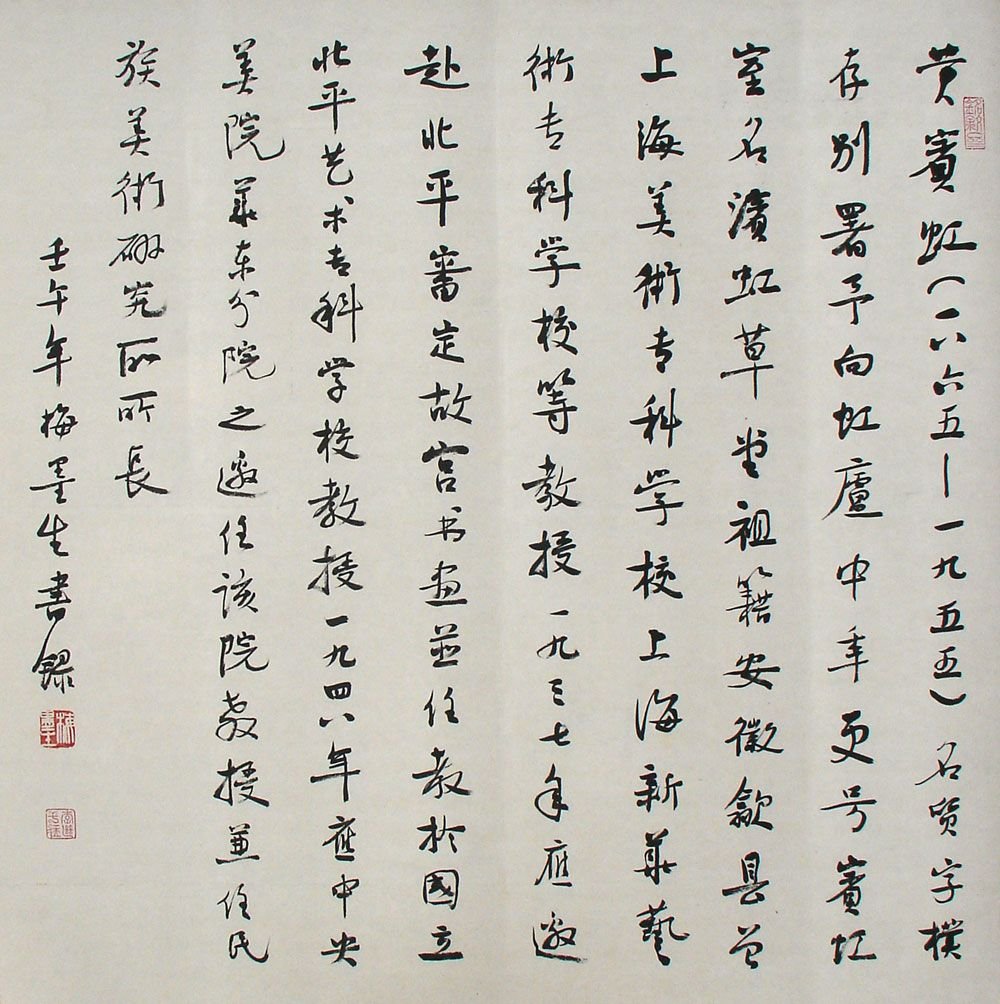 黄賓虹（一八六五—一九五五）名質字樸
存别署予向虹廬中年更号賓虹
室名濱虹草堂祖籍安徽歙县曾
上海美術专科学校上海新華藝
術专科学校等教授一九三七年應邀
赴北平審定故宫书画並任教於國立
北平艺术专科学校教授一九四八年應中央
美院華东分院之邀任该院教授兼任民
族美術研究所所長
壬午年梅墨生書録
梅墨生